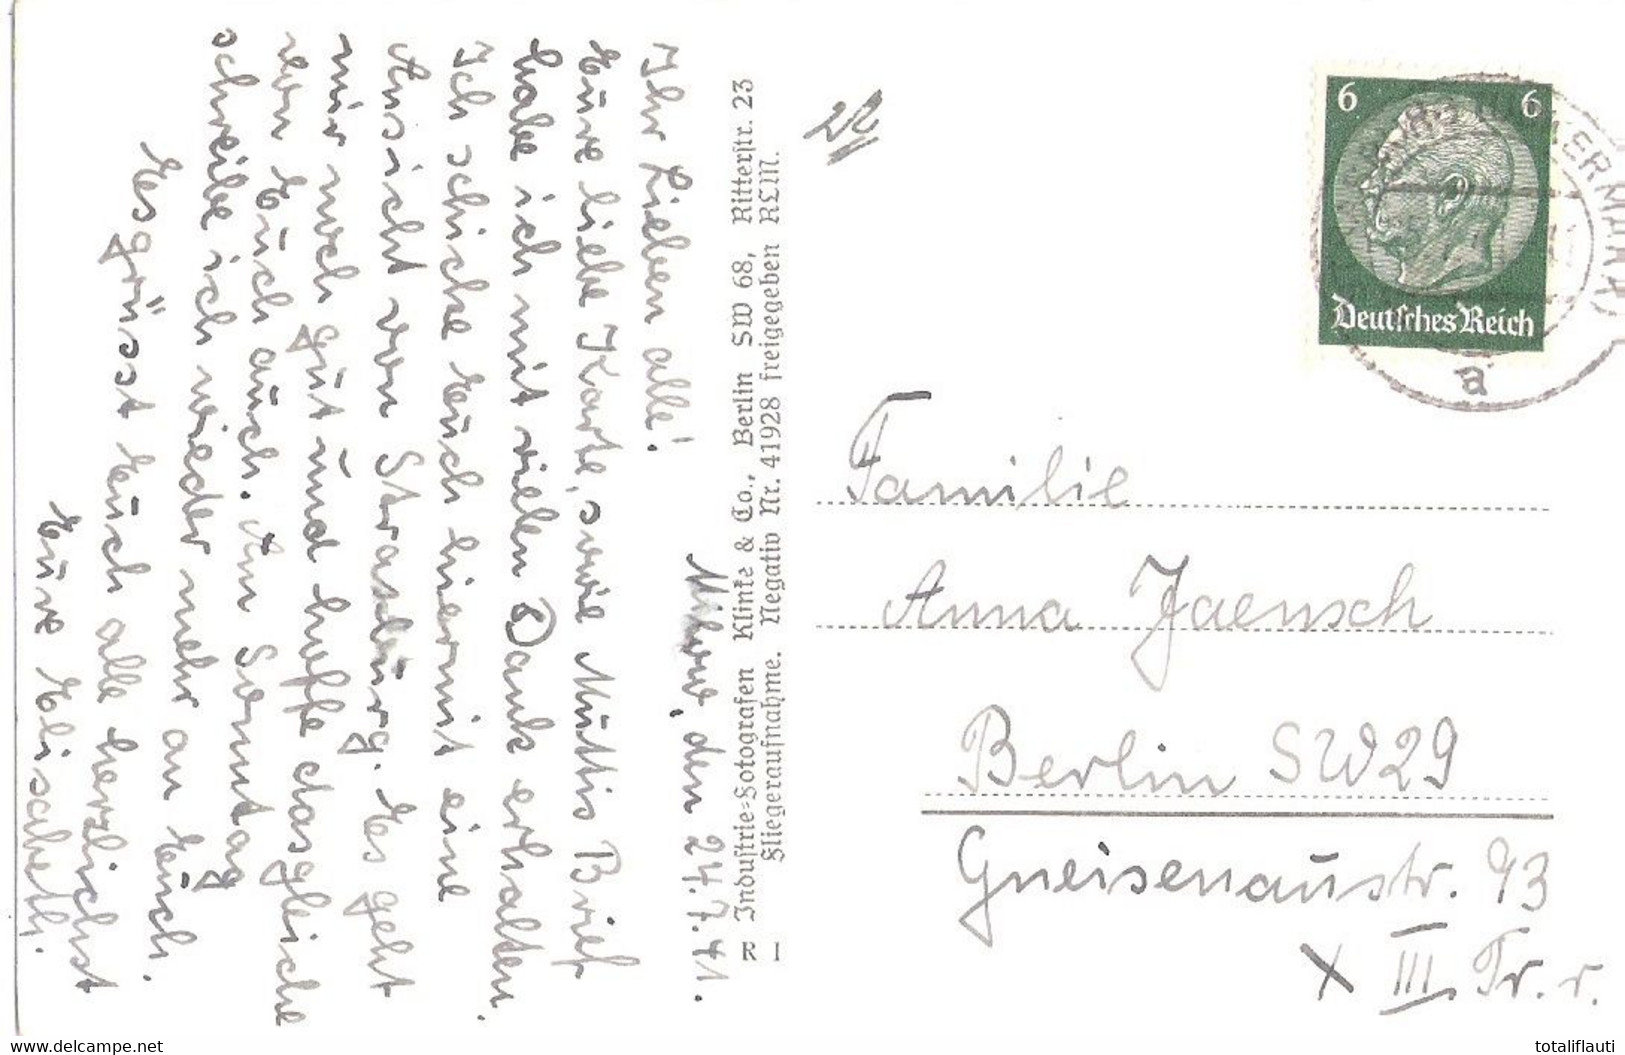 den 24.7.41.
Ihr Lieben alle!
Eure liebe Karte, sowie Muttis Brief
habe ich mit vielen Dank erhalten.
Ich schicke Euch hiermit eine
Ansicht von Strasburg. Es geht
mir noch gut und hoffe dasgleiche
von Euch auch. Am Sonntag
schreibe ich wieder mehr an Euch.
Es grüsst Euch alle herzlichst
Eure Elisabeth.
R I
Industrie-Fotografen Klinke & Co., Berlin SW 68, Ritterstr. 23
Fliegeraufnahme. Negativ Nr. 41928 freigegeben RLM.
22
6 6
Deutsches Reich
ERMARK)
a
Familie
Anna Jaensch
Berlin SW29
Gneisenaustr. 93
X III Tr. r.
www.delcampe.net
totaliflauti